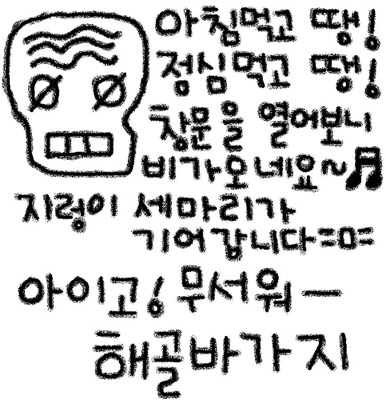 아침먹고 땡!
점심먹고 땡!
창문을 열어보니
비가오네요~♬
지렁이 세마리가
기어갑니다=ㅁ=
아이고! 무서워ㅡ
해골바가지